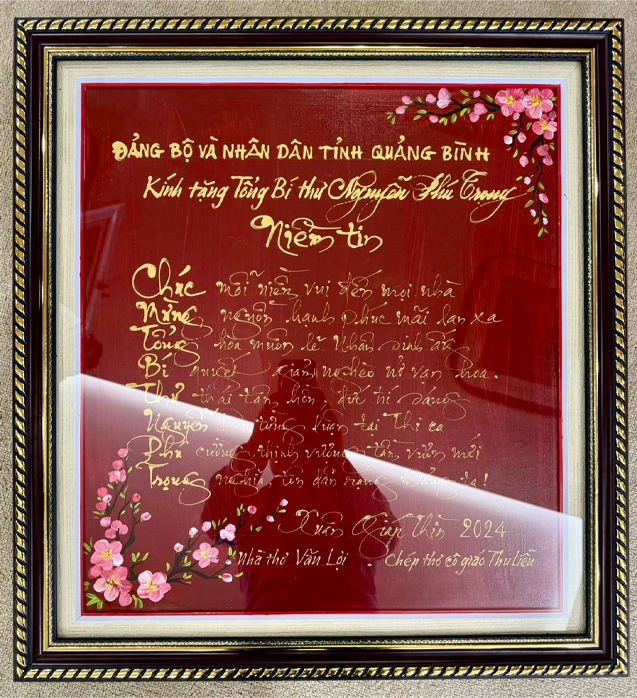 ĐẢNG BỘ VÀ NHÂN DÂN TỈNH QUẢNG BÌNH
Kính tặng Tổng Bí thư Nguyễn Phú Trọng
Niềm tin
Chúc mỗi niềm vui đến mọi nhà
Mừng nguồn hạnh phúc mãi lan xa
Tổng hòa muôn lẽ nhân sinh
Bí quyết giảm nghèo nở vạn hoa.
Thư thái tâm hồn đức trí sáng
Nguyễn tưởng luận tài thi ca
Phú cường thịnh vượng tầm viễn mới
Trọng nghĩa tôn dân rạng Đảng ta!
Xuân Giáp Thìn 2024
Nhà thơ Văn Lợi - Chép thơ cô giáo Thu Liễu